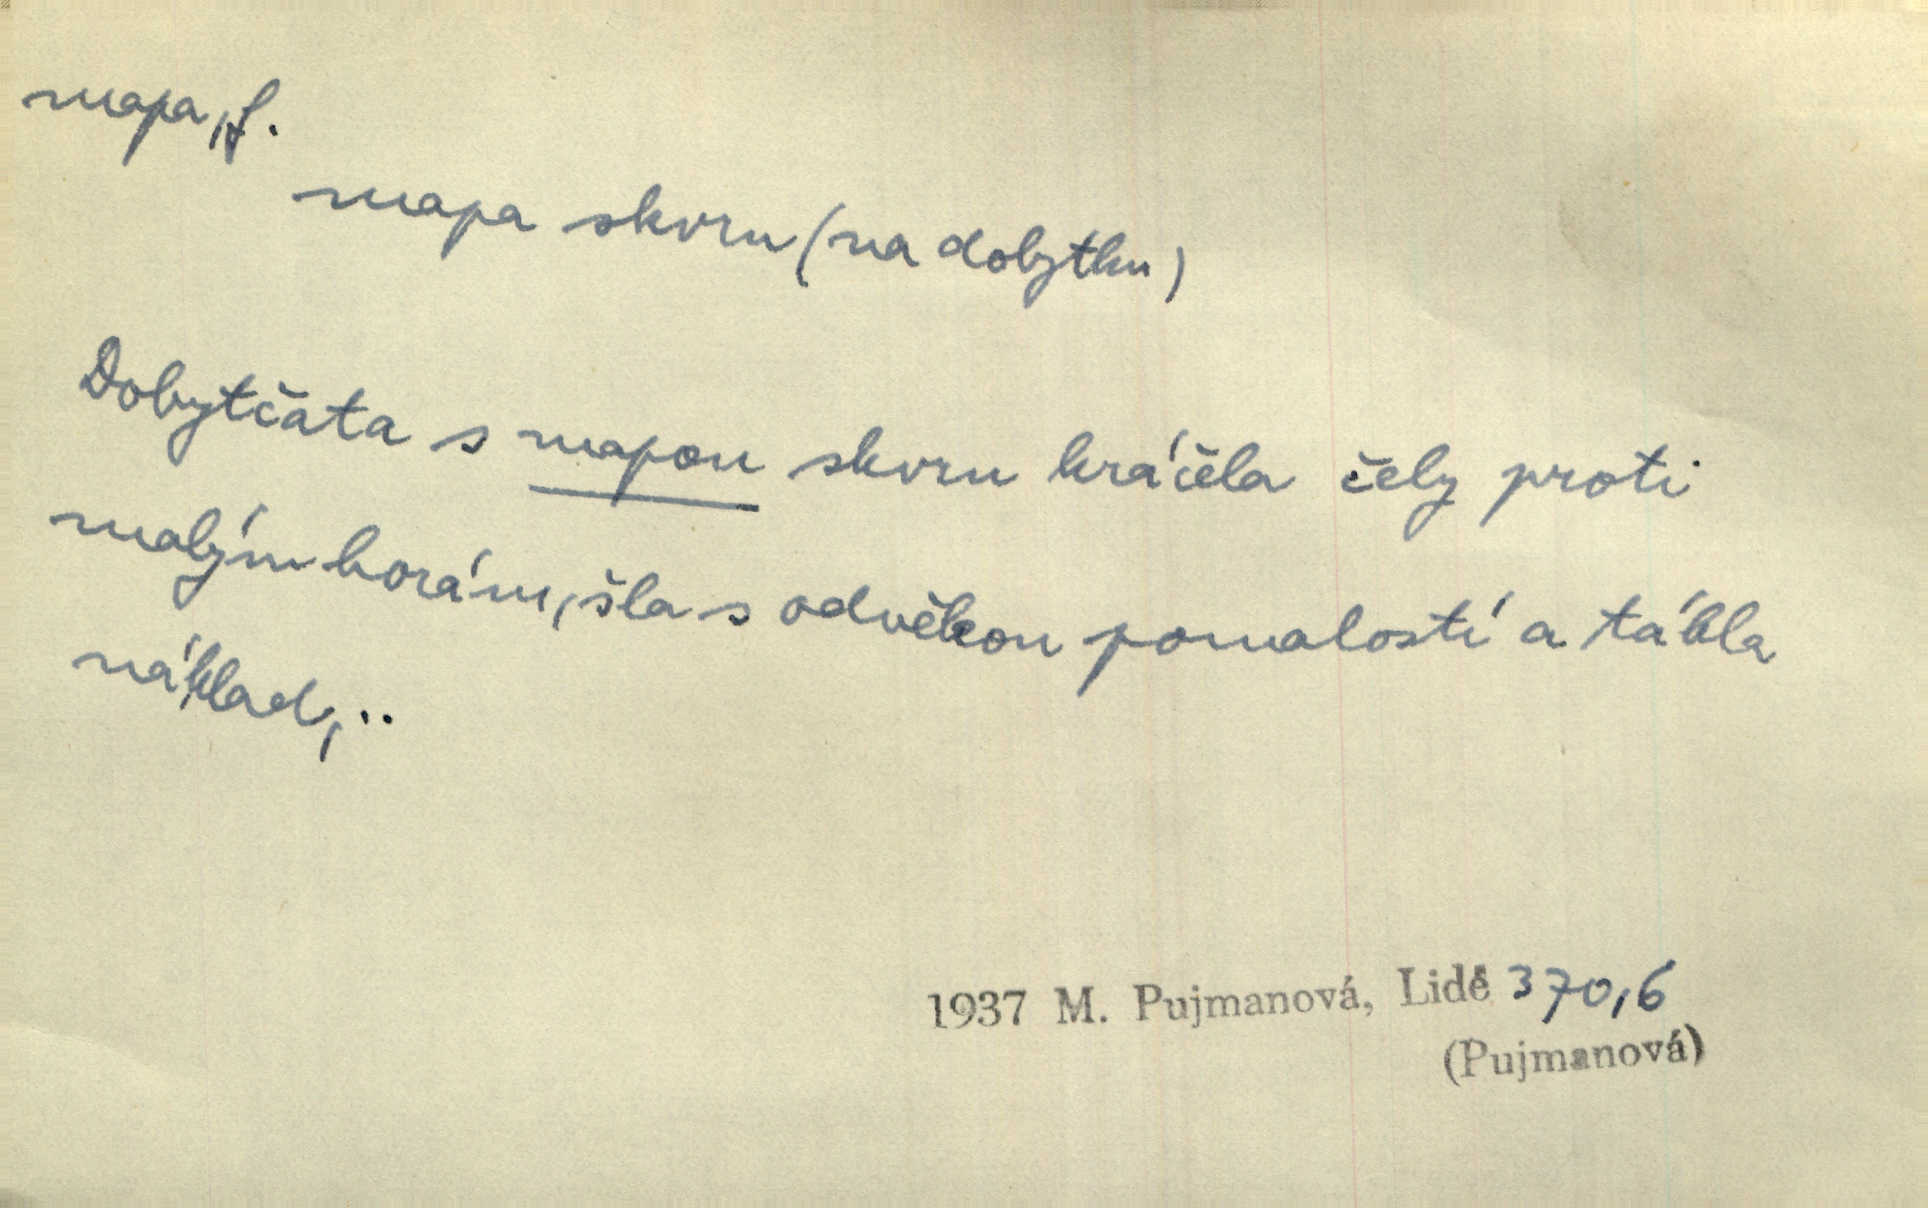 mapa, f.
mapa skvrn (na dobytku)
Dobytčata s mapou skvrn kráčela čely proti
malým horám, šla s odvěkou pomalostí a táhla
náklad, ..
1937 M. Pujmanová, Lidé 370,6
(Pujmanová)